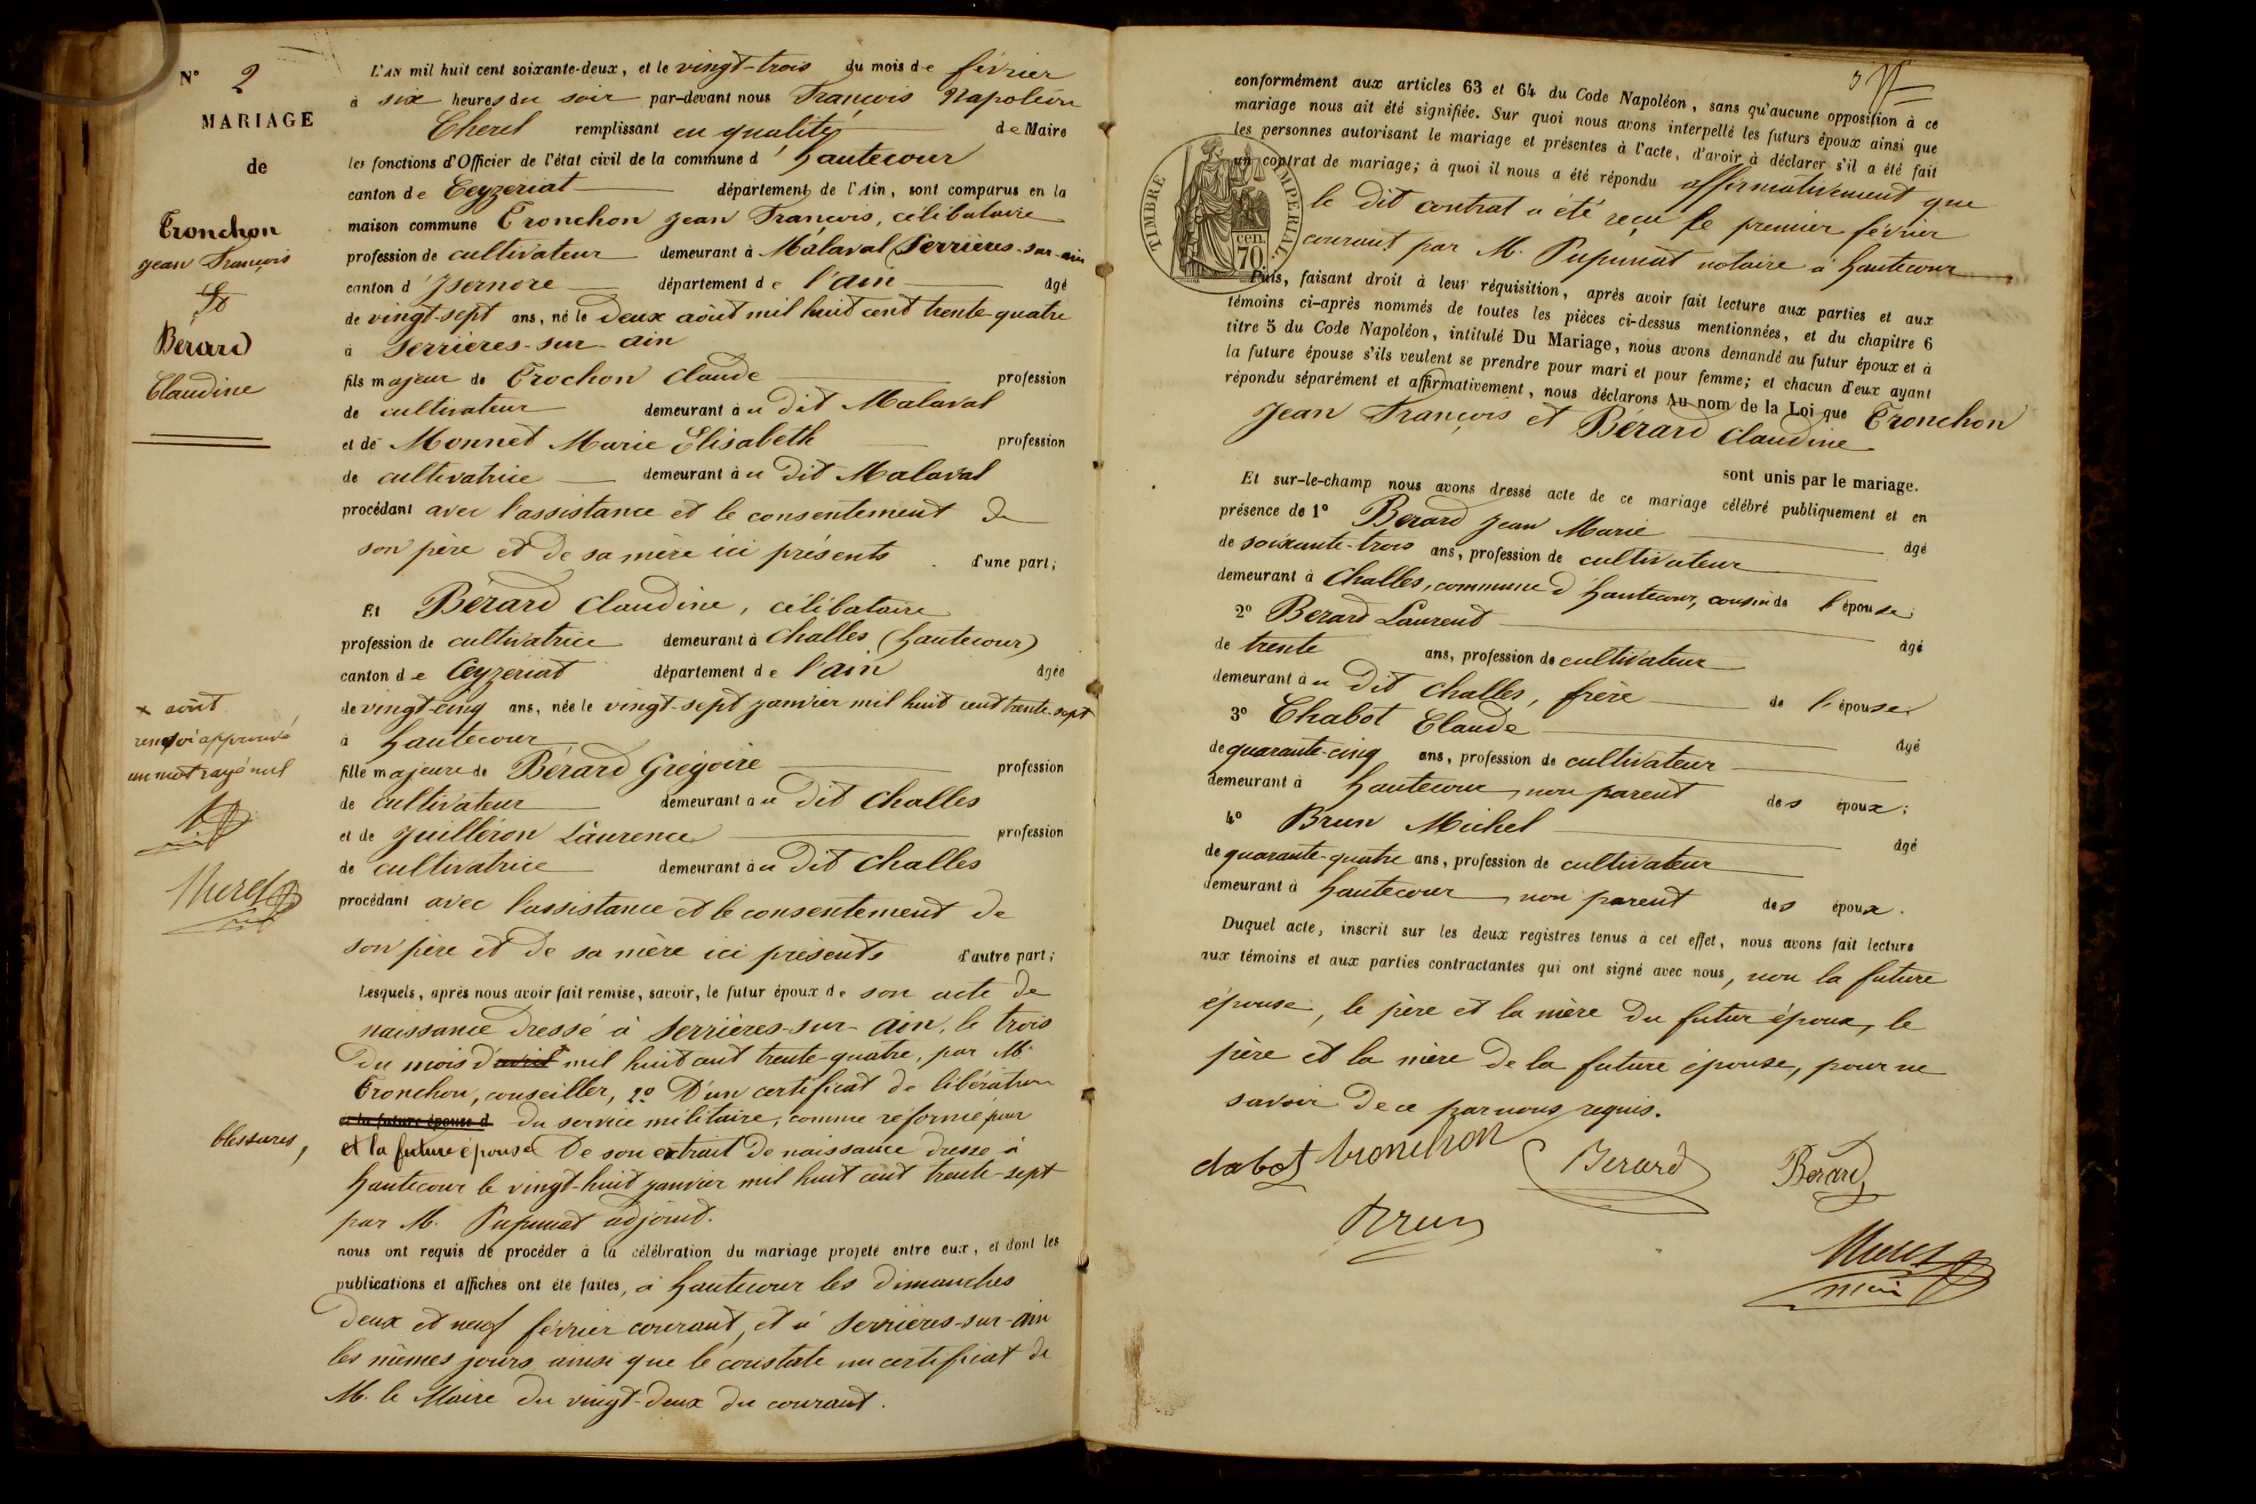 N° 2
MARIAGE
de
Tronchon
Jean François
Et
Bérard
Claudine
L'AN mil huit cent soixante-deux, et le vingt-trois du mois de février
à six heures du soir par-devant nous François Napoléon
remplissant en qualité de Maire
les fonctions d'Officier de l'état civil de la commune d'hautecour
canton de Ceyzeriat département de l'Ain, sont comparus en la
maison commune Tronchon Jean François, célibataire
profession de cultivateur demeurant à Malaval (Serrières-sur-ain
canton d'Isernore département de l'ain âgé
de vingt-sept ans, né le deux août mil huit cent trente-quatre
à Serrières-sur-ain
fils majeur de Trochon Claude profession
de cultivateur demeurant au dit Malaval
et de Monnet Marie Elisabeth profession
de cultivatrice demeurant au dit Malaval
procédant avec l'assistance et le consentement de
son père et de sa mère ici présents d'une part;
Et Bérard Claudine, célibataire
profession de cultivatrice demeurant à Challes (hautecour)
canton de Ceyzeriat département de l'ain âgée
de vingt-cinq ans, née le vingt-sept janvier mil huit cent trente-sept
à hautecour
fille majeure de Bérard Grégoire profession
de cultivateur demeurant au dit Challes
et de Juilléron Laurence profession
de cultivatrice demeurant au dit Challes
procédant avec l'assistance et le consentement de
son père et de sa mère ici présents d'autre part;
Lesquels, après nous avoir fait remise, savoir, le futur époux de son acte de
naissance dressé à Serrières-sur-ain, le trois
du mois d'avril mil huit cent trente-quatre, par M.
Tronchon, conseiller, 2° D'un certificat de libération
et la future épouse d du service militaire, comme réformé pour
et la future épouse De son extrait de naissance dressé à
hautecour le vingt-huit janvier mil huit cent trente-sept
par M. Pupunat adjoint.
nous ont requis de procéder à la célébration du mariage projeté entre eux, et dont les
publications et affiches ont été faites, à hautecour les dimanches
deux et neuf février courant, et à Serrières-sur-ain
les mêmes jours ainsi que le constate un certificat de
M. le Maire du vingt-deux du courant.
x août
renvoi approuvé
un mot rayé nul
blessures,
conformément aux articles 63 et 64 du Code Napoléon, sans qu'aucune opposition à ce
mariage nous ait été signifiée. Sur quoi nous avons interpellé les futurs époux ainsi que
les personnes autorisant le mariage et présentes à l'acte, d'avoir à déclarer s'il a été fait
un contrat de mariage; à quoi il nous a été répondu affirmativement que
le dit contrat a été reçu le premier février
courant par M. Pupunat notaire à hautecour
TIMBRE IMPÉRIAL
70 cen.
Puis, faisant droit à leur réquisition, après avoir fait lecture aux parties et aux
témoins ci-après nommés de toutes les pièces ci-dessus mentionnées, et du chapitre 6
titre 5 du Code Napoléon, intitulé Du Mariage, nous avons demandé au futur époux et à
la future épouse s'ils veulent se prendre pour mari et pour femme; et chacun d'eux ayant
répondu séparément et affirmativement, nous déclarons Au nom de la Loi que Tronchon
Jean François et Bérard Claudine
sont unis par le mariage.
Et sur-le-champ nous avons dressé acte de ce mariage célébré publiquement et en
présence de 1° Berard Jean Marie âgé
de soixante-trois ans, profession de cultivateur
demeurant à Challes, commune d'hautecour, cousin de l'épouse;
2° Berard Laurent âgé
de trente ans, profession de cultivateur
demeurant au dit Challes, frère de l'épouse;
3° Chabot Claude âgé
de quarante-cinq ans, profession de cultivateur
demeurant à hautecour, non parent des époux;
4° Brun Michel âgé
de quarante-quatre ans, profession de cultivateur
demeurant à hautecour, non parent des époux.
Duquel acte, inscrit sur les deux registres tenus à cet effet, nous avons fait lecture
aux témoins et aux parties contractantes qui ont signé avec nous, non la future
épouse, le père et la mère du futur époux, le
père et la mère de la future épouse, pour ne
savoir de ce par nous requis.
chabot tronchon Berard Berard
Brun